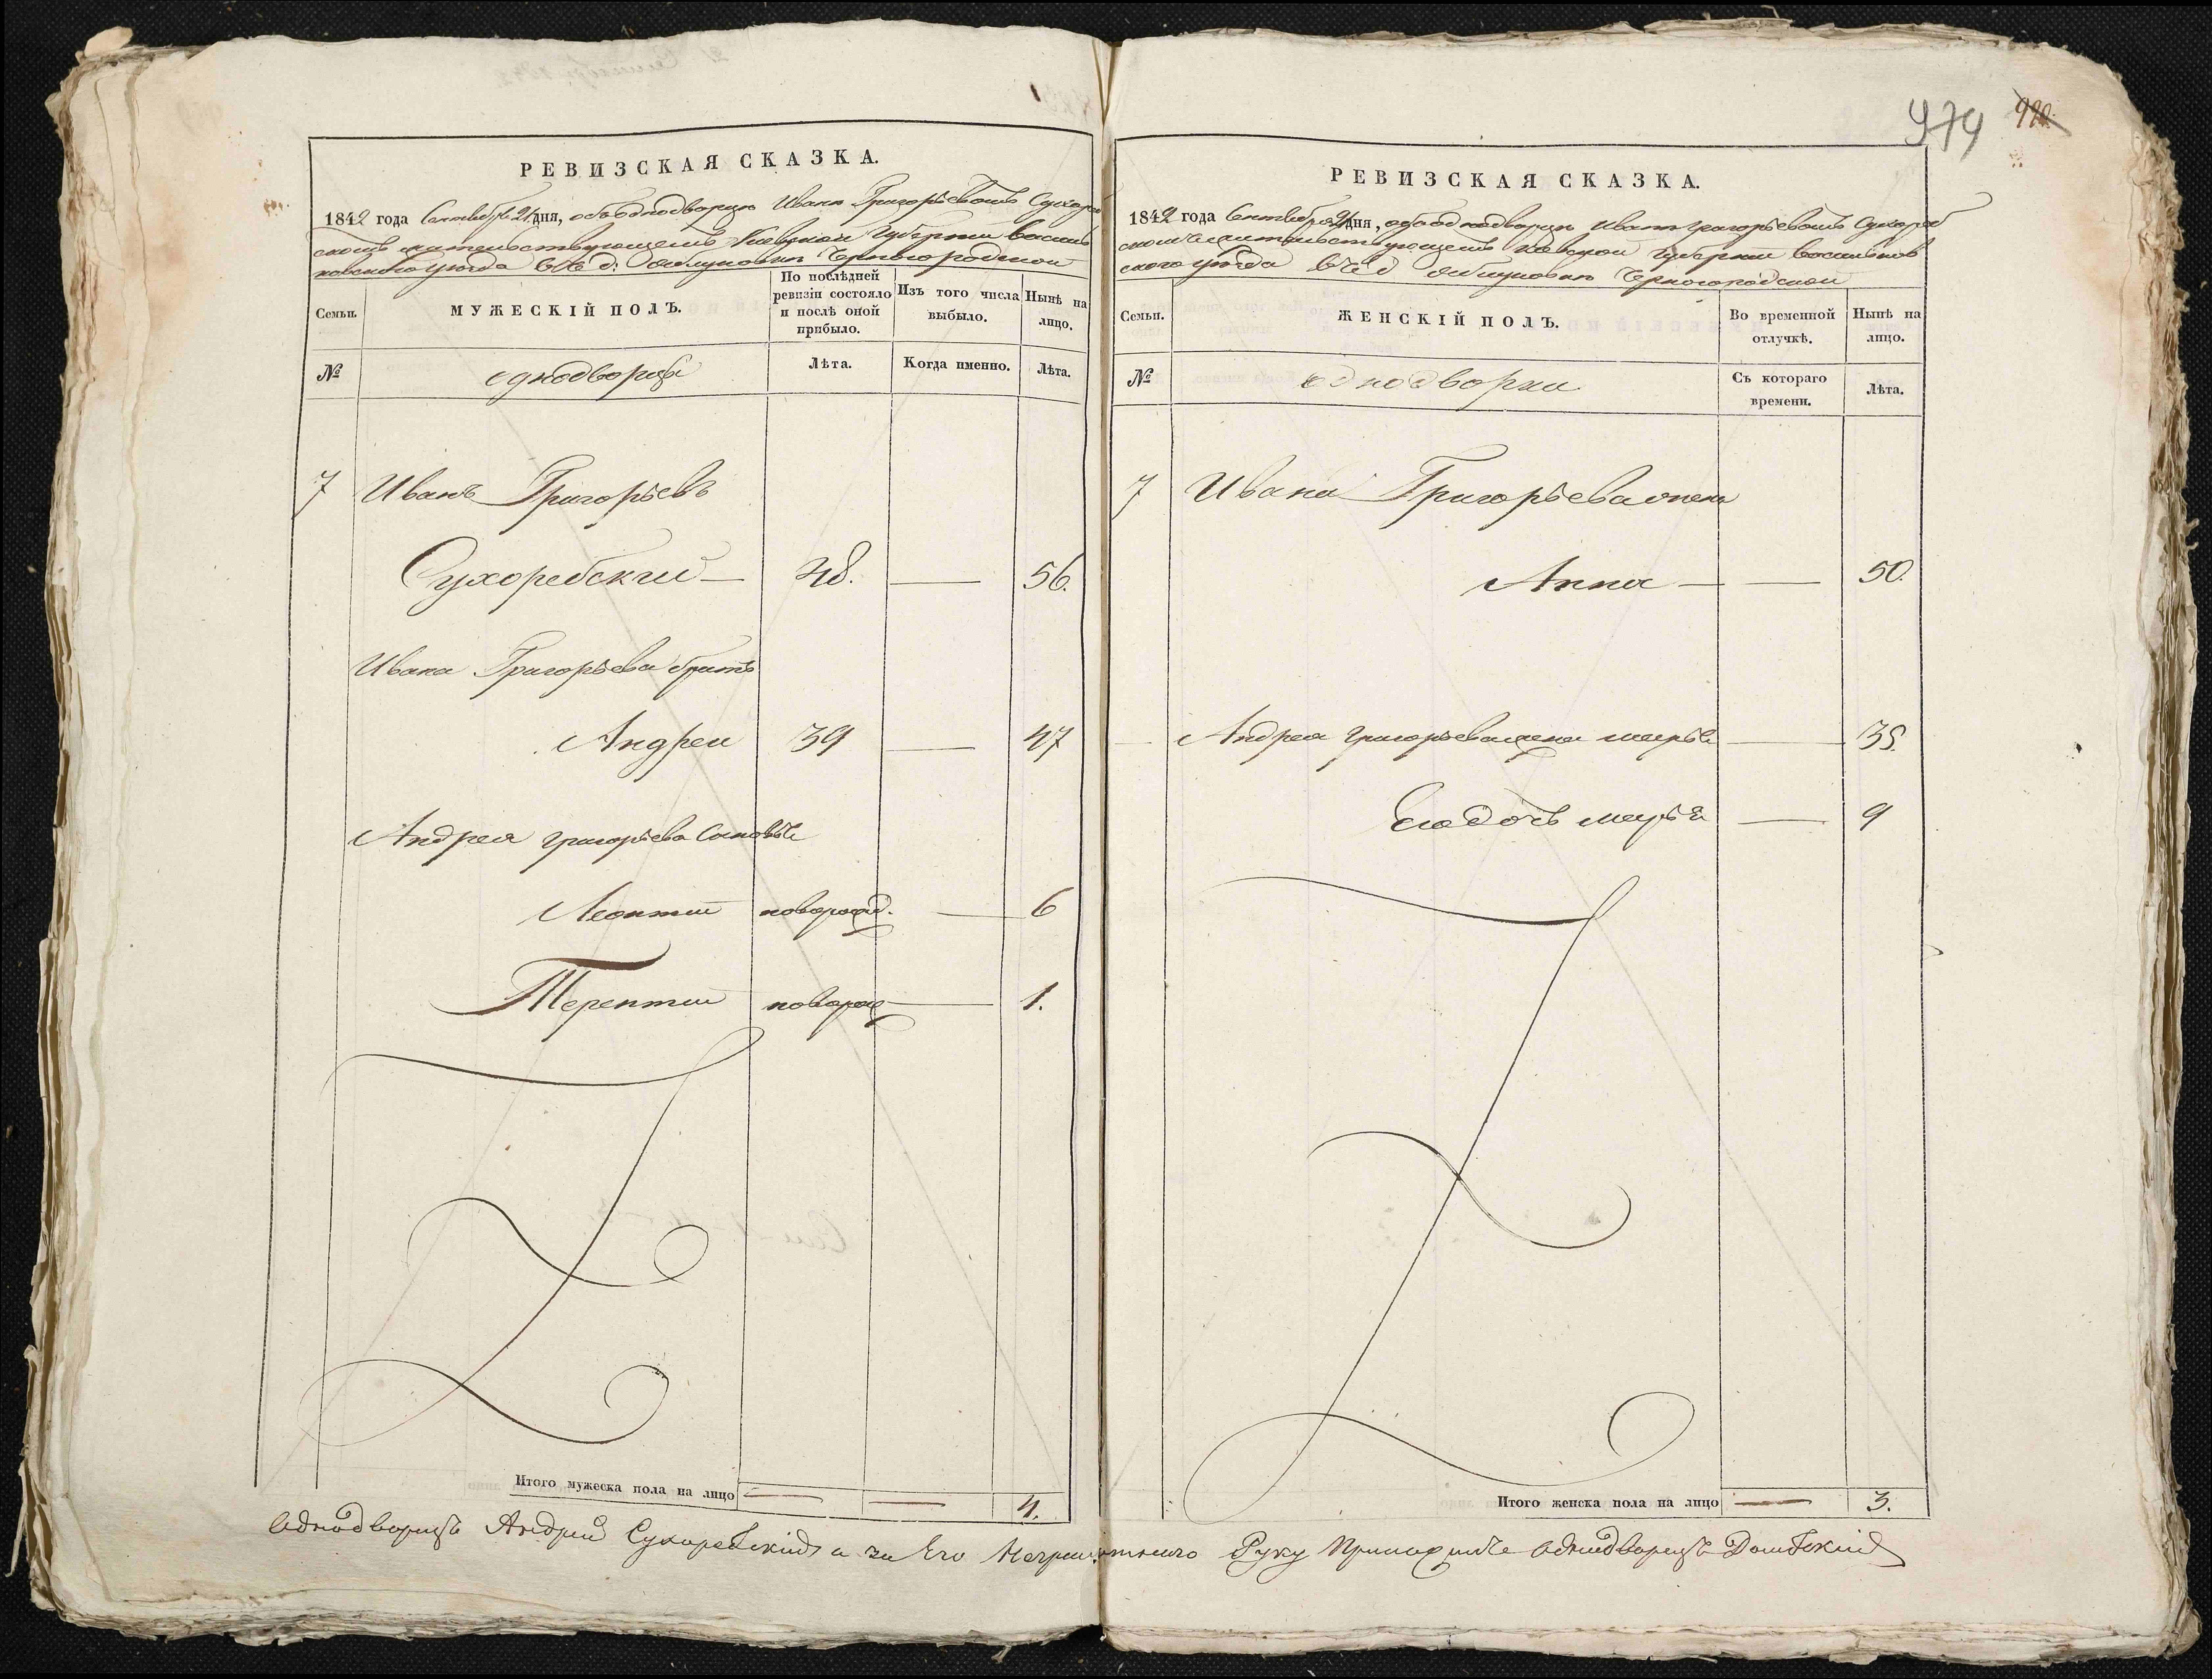 979 980
РЕВИЗСКАЯ СКАЗКА.
1842 года Сентября 21 дня, объ однодворцѣ Иванѣ Григорьевомъ Сухореб
скомъ жительствующемъ Киевской Губернии Василь
ковскаго уѣзда въ д: Черногородской
Семьи. МУЖЕСКІЙ ПОЛЪ. По послѣдней ревизіи состояло и послѣ оной прибыло. Изъ того числа выбыло. Нынѣ на лицо.
№ однодворцы Лѣта. Когда именно. Лѣта.
7 Иванъ Григорьевъ
Сухоребский — 48. — 56.
Ивана Григорьева братъ
Андреи 39 — 47
Андрея Григорьева Сыновья
Леонтии новорожд. — 6
Терентии новорож — 1.
Итого мужеска пола на лицо — — 4.
РЕВИЗСКАЯ СКАЗКА.
1842 года Сентября 21 дня, объ однодворцѣ Иванѣ Григорьевомъ Сухореб
скомъ жительствующемъ Киевской Губернии Васильков
ского уѣзда въ д Черногородской
Семьи. ЖЕНСКІЙ ПОЛЪ. Во временной отлучкѣ. Нынѣ на лицо.
№ однодворки Съ котораго времени. Лѣта.
7 Ивана Григорьева жена
Анна — — 50.
— Андрея Григорьева жена Марья — 35.
Его дочь Марья — 9
Итого женска пола на лицо — 3.
Однодворецъ Андрей Сухоребский а за Его Неграмотнаго Руку Приложилъ Однодворецъ